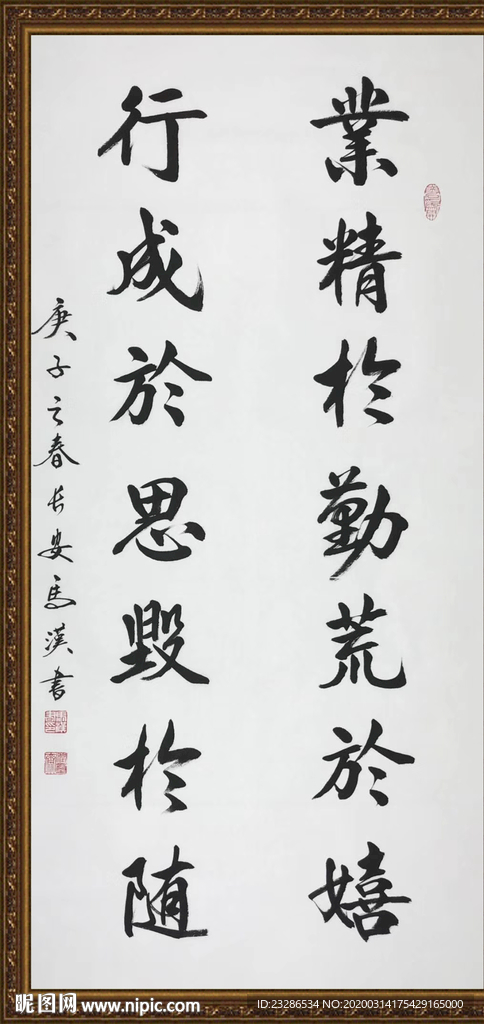 業精於勤荒於嬉
行成於思毀於随
庚子之春长安馬漢書
昵图网 www.nipic.com
ID:23286534 NO:20200314175429165000